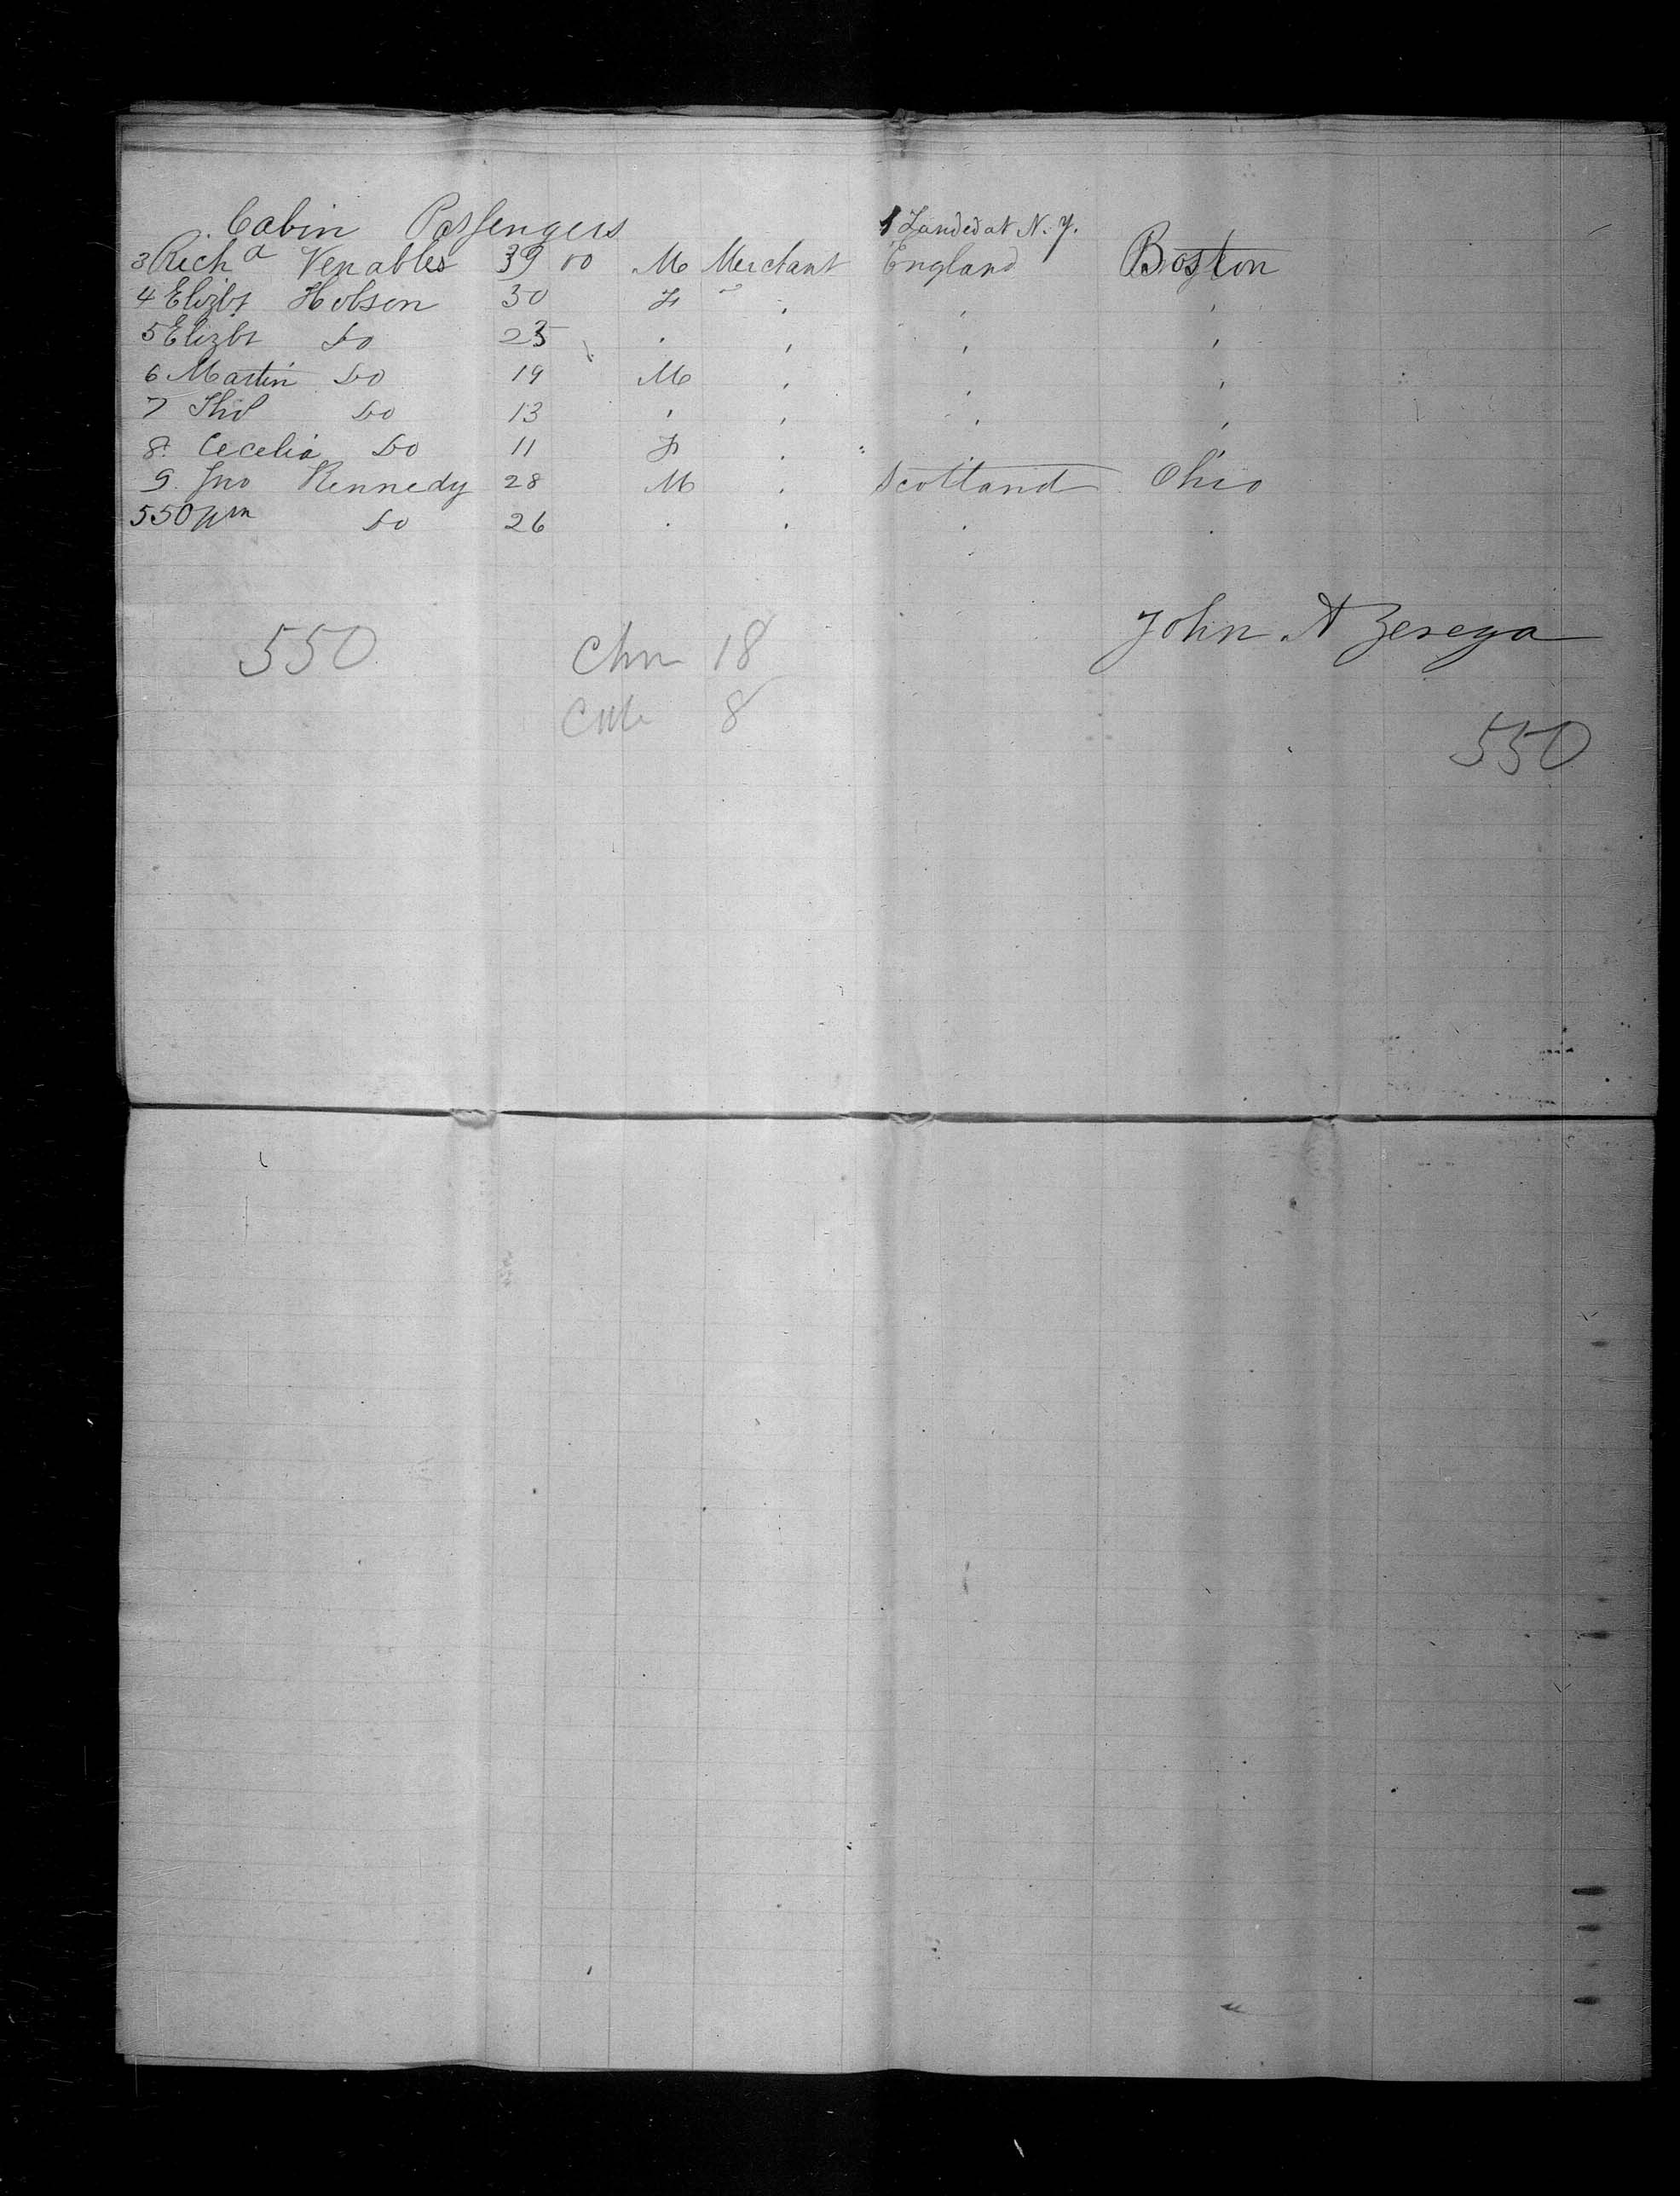 Cabin Passengers 1 Landed at N. Y.
3 Richd Venables 39 00 M Merchant England Boston
4 Elizbt Hobson 30 F " , , ,
5 Elizbt Do 25 . , , ,
6 Martin Do 19 M , , ,
7 Thos Do 13 , , , ,
8. Cecelia Do 11 F . " ,
9. Jno Kennedy 28 M . Scotland Ohio
550 Wm Do 26 . . . .
John A Zerega
550 Chn 18
8
550